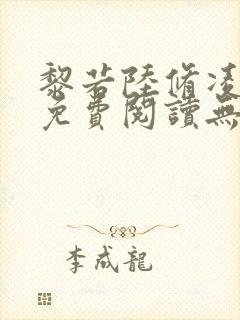 黎若陸脩凌
免費閱讀無
李成龍